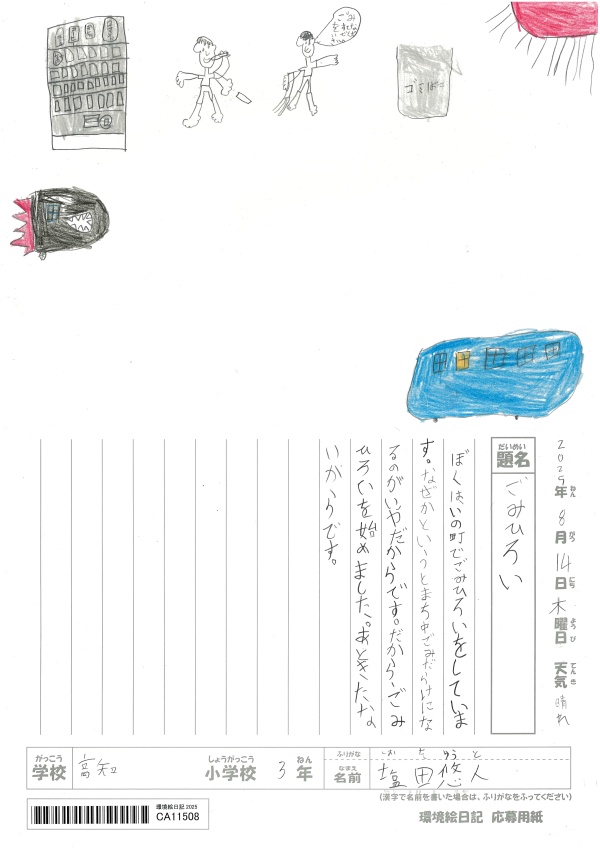 ごみ
ゴミばこ
2025年 8月 14日 木曜日 天気 晴れ
ねん がつ にち ようび てんき
だいめい
題名
ごみひろい
ぼくはいの町でごみひろいをしていま
す。なぜかというとまち中ごみだらけにな
るのがいやだからです。だからごみ
ひろいを始めました。あときたな
いからです。
がっこう
学校
高知
しょうがっこう
小学校
3
ねん
年
ふりがな
なまえ
名前
ゆうと
塩田悠人
(漢字で名前を書いた場合は、ふりがなをふってください)
環境絵日記 2025
CA11508
環境絵日記 応募用紙